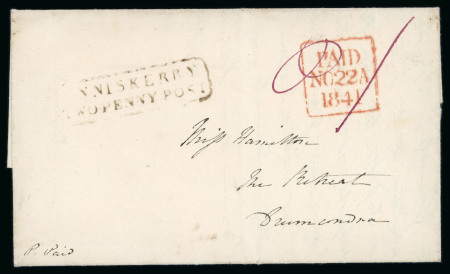 NNISKERRY
WOPENNY POST
PAID
NO22A
1841
Miss Hamilton
The Retreat
Drumcondra
P. Paid